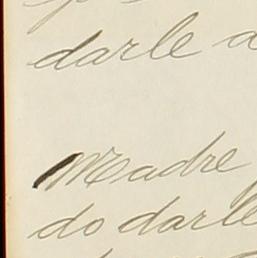 darle a
Madre
do darle